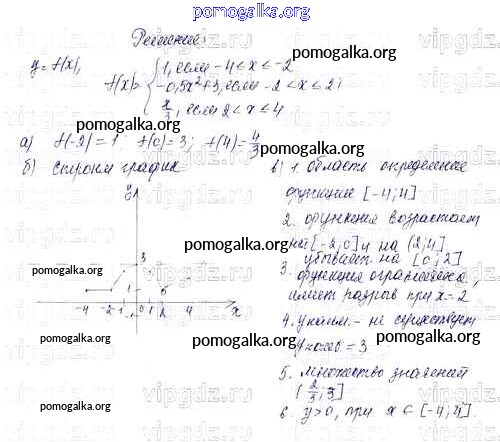 pomogalka.org
Решение:
y=f(x),
f(x)= { 1, если -4≤x≤-2
-0,5x²+3, если -2<x≤2;
x/3, если 2<x≤4
а) f(-2)=1 f(0)=3; f(4)=4/3
б) строим график
y
3
1
-4 -2 -1 0 1 2 4 x
в) 1. Область определения
функции [-4;4]
2. функция возрастает
на [-2;0] и на (2;4]
убывает на [0;2]
3. функция ограничена,
имеет разрыв при x=2
4. y наим. - не существует
y наиб = 3
5. множество значений
(2/3; 3]
6. y>0, при x∈[-4;4].
pomogalka.org
pomogalka.org
pomogalka.org
pomogalka.org
pomogalka.org
pomogalka.org
pomogalka.org
pomogalka.org
vipgdz.ru